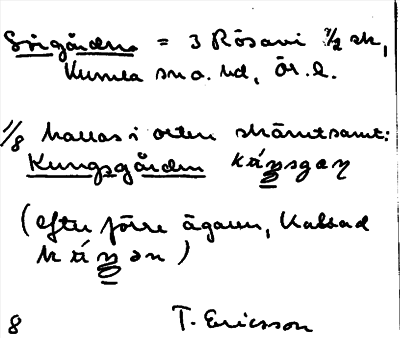 Sörgården = 3 Rösavi 7/2 sk,
Kumla sn o. hd, Ör. l.
1/8 kallas i orten skämtsamt:
Kungsgården
(efter förre ägaren, kallad
)
8 T. Ericsson